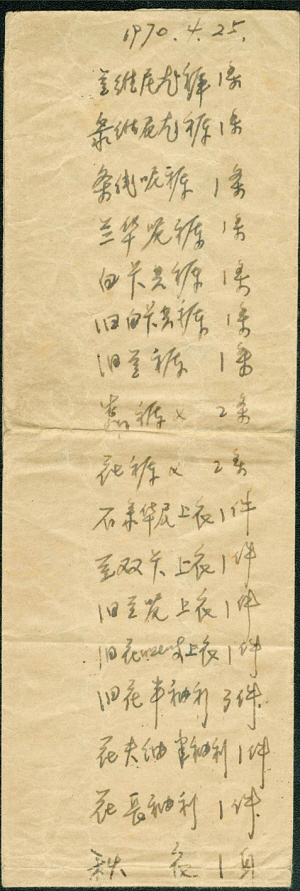 1970.4.25.
兰维尼龙裤 1条
条维尼龙裤 1条
条线呢裤 1条
兰华呢裤 1条
白卡其裤 1条
旧白卡其裤 1条
旧兰裤 1条
裤 x 2条
花裤 x 2条
华尼上衣 1件
兰双卡上衣 1件
旧兰 上衣 1件
旧花 上衣 1件
旧花 袖 3件
花 袖 1件
花長袖 1件
秋 衣 1